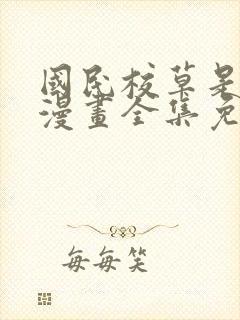 國民校草是
漫畫全集免
每每笑